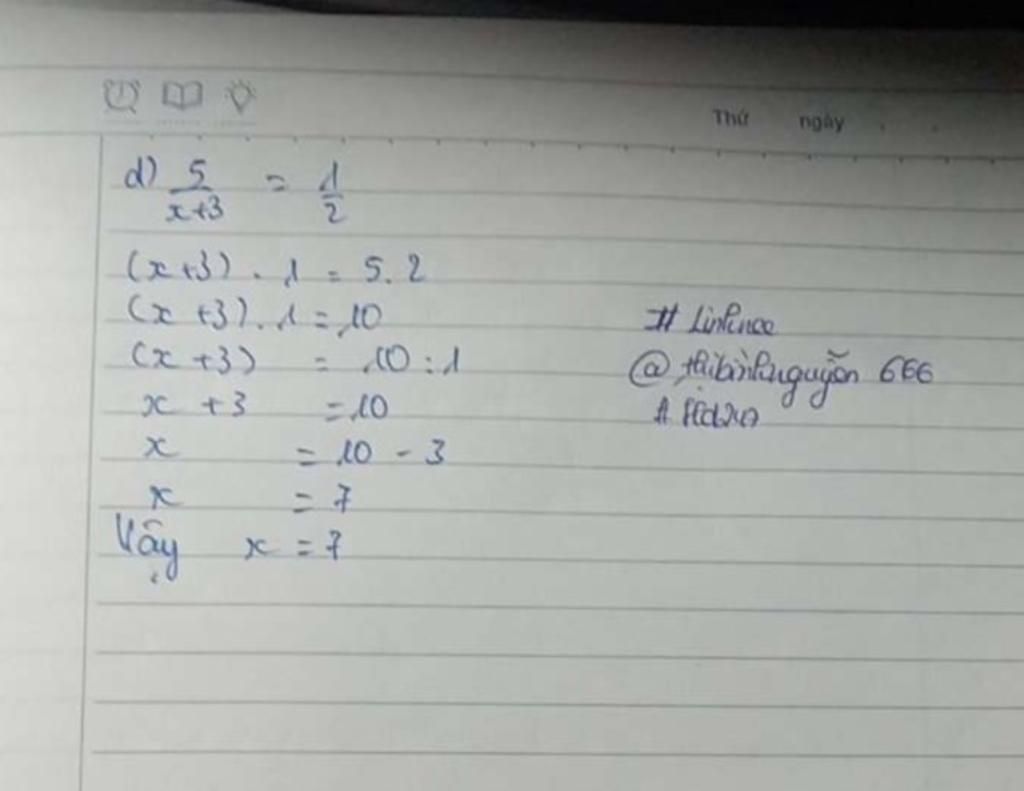 Thứ ngày
d) 5/(x+3) = 1/2
(x+3) . 1 = 5.2
(x+3).1 = 10
(x+3) = 10:1
x+3 = 10
x = 10 - 3
x = 7
Vậy x = 7
#
@thibinhnguyễn 666
#